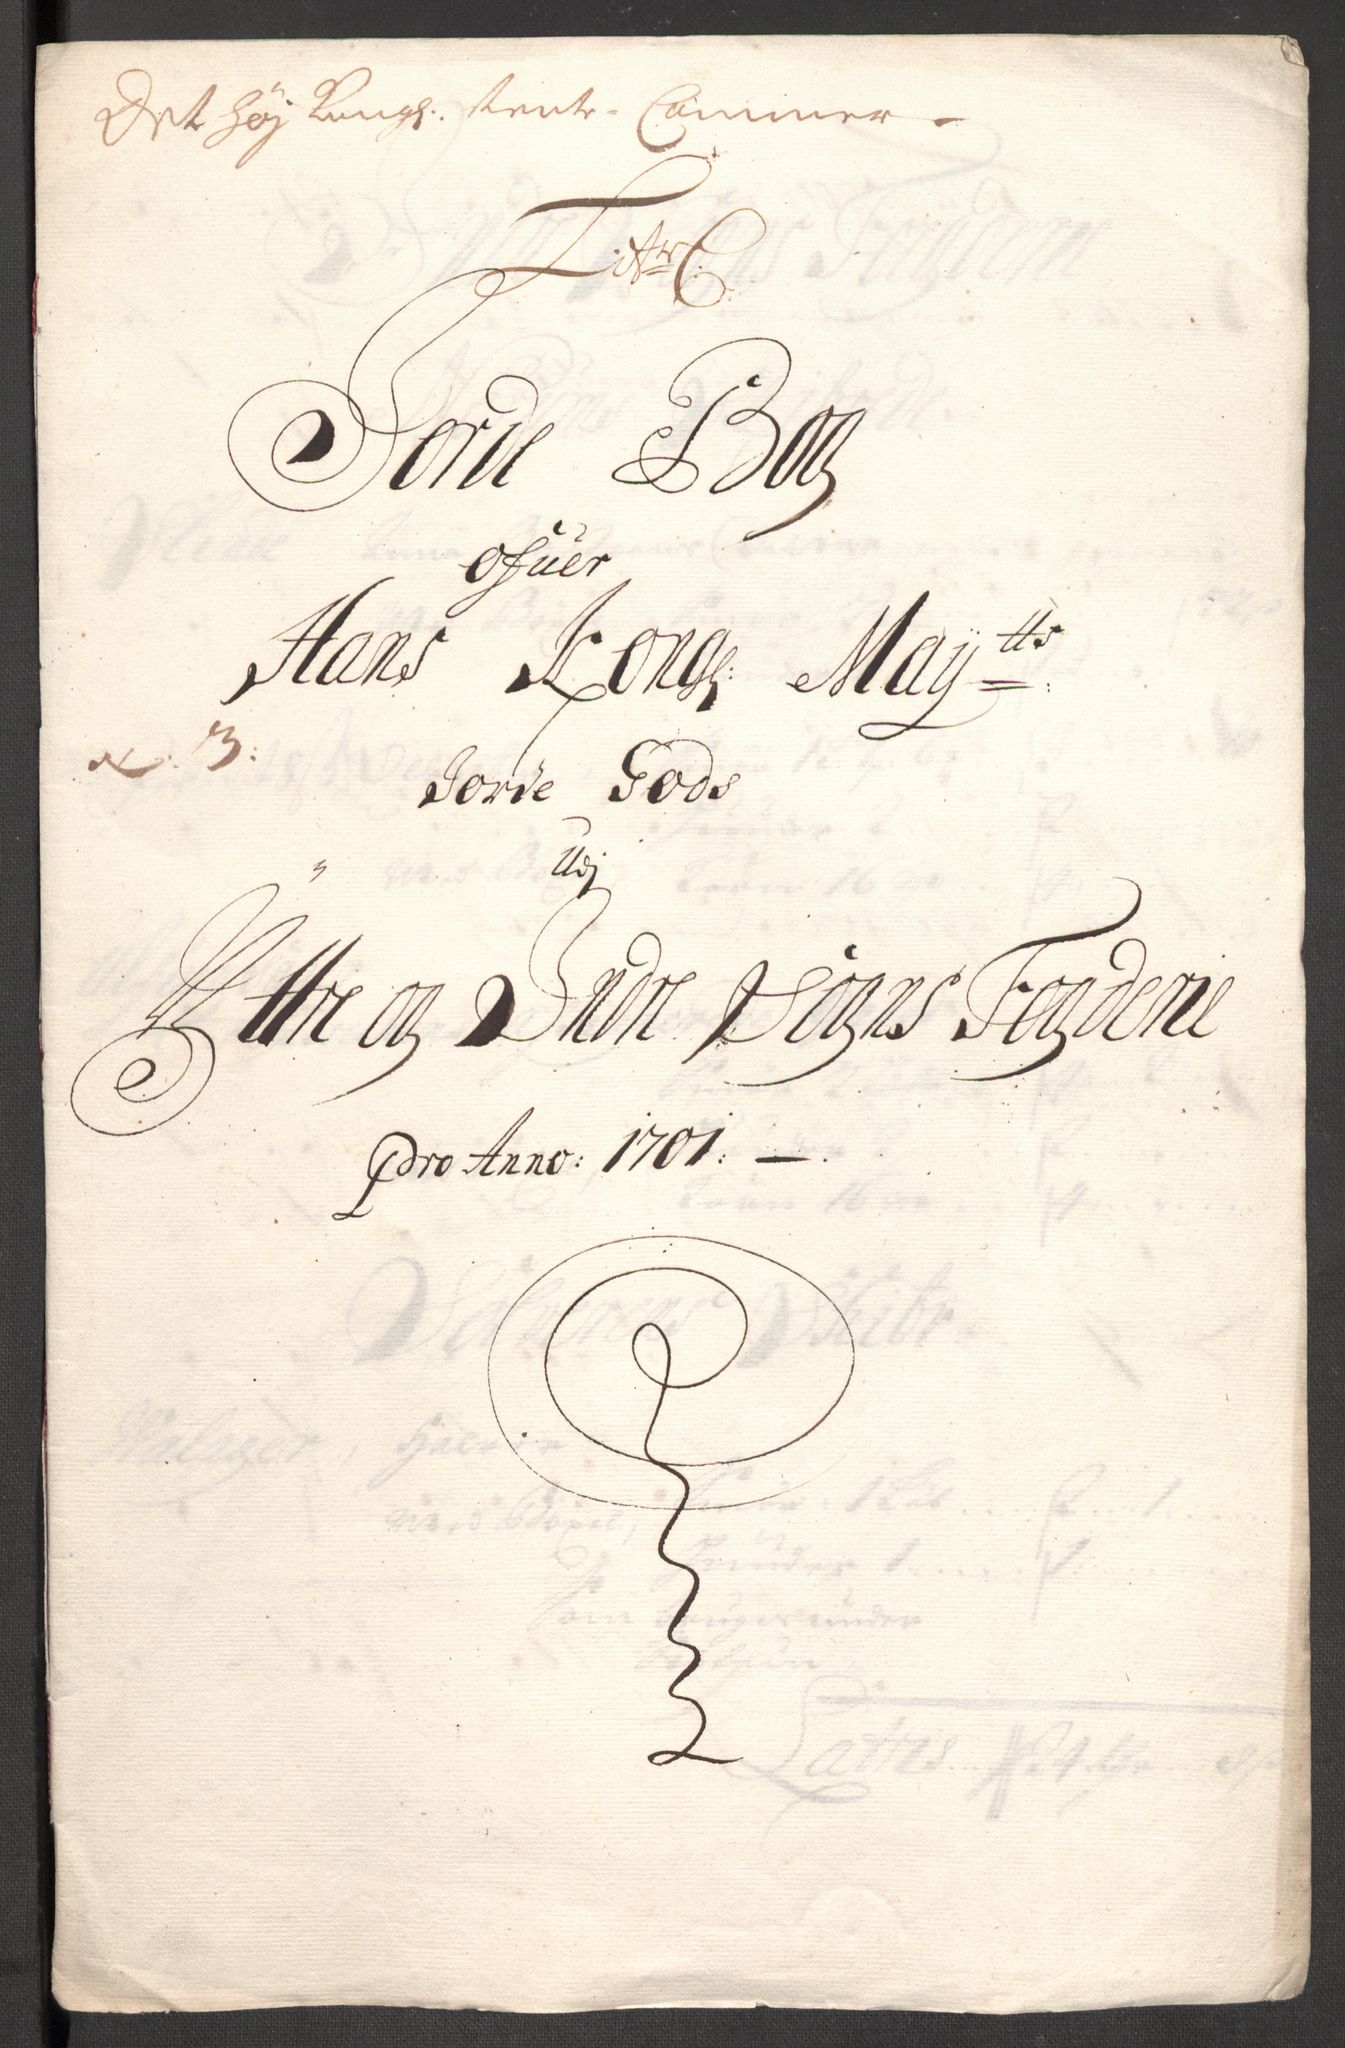 Det høj Kongl: Rente-Cammer-
Litr C:
Jorde Bog
ofuer
Hans Kongl: Maÿtts:
N: 3:
Jorde Gods
Udj
Ÿttre og Indre Sogns Fogderie
Pro Anno: 1701: